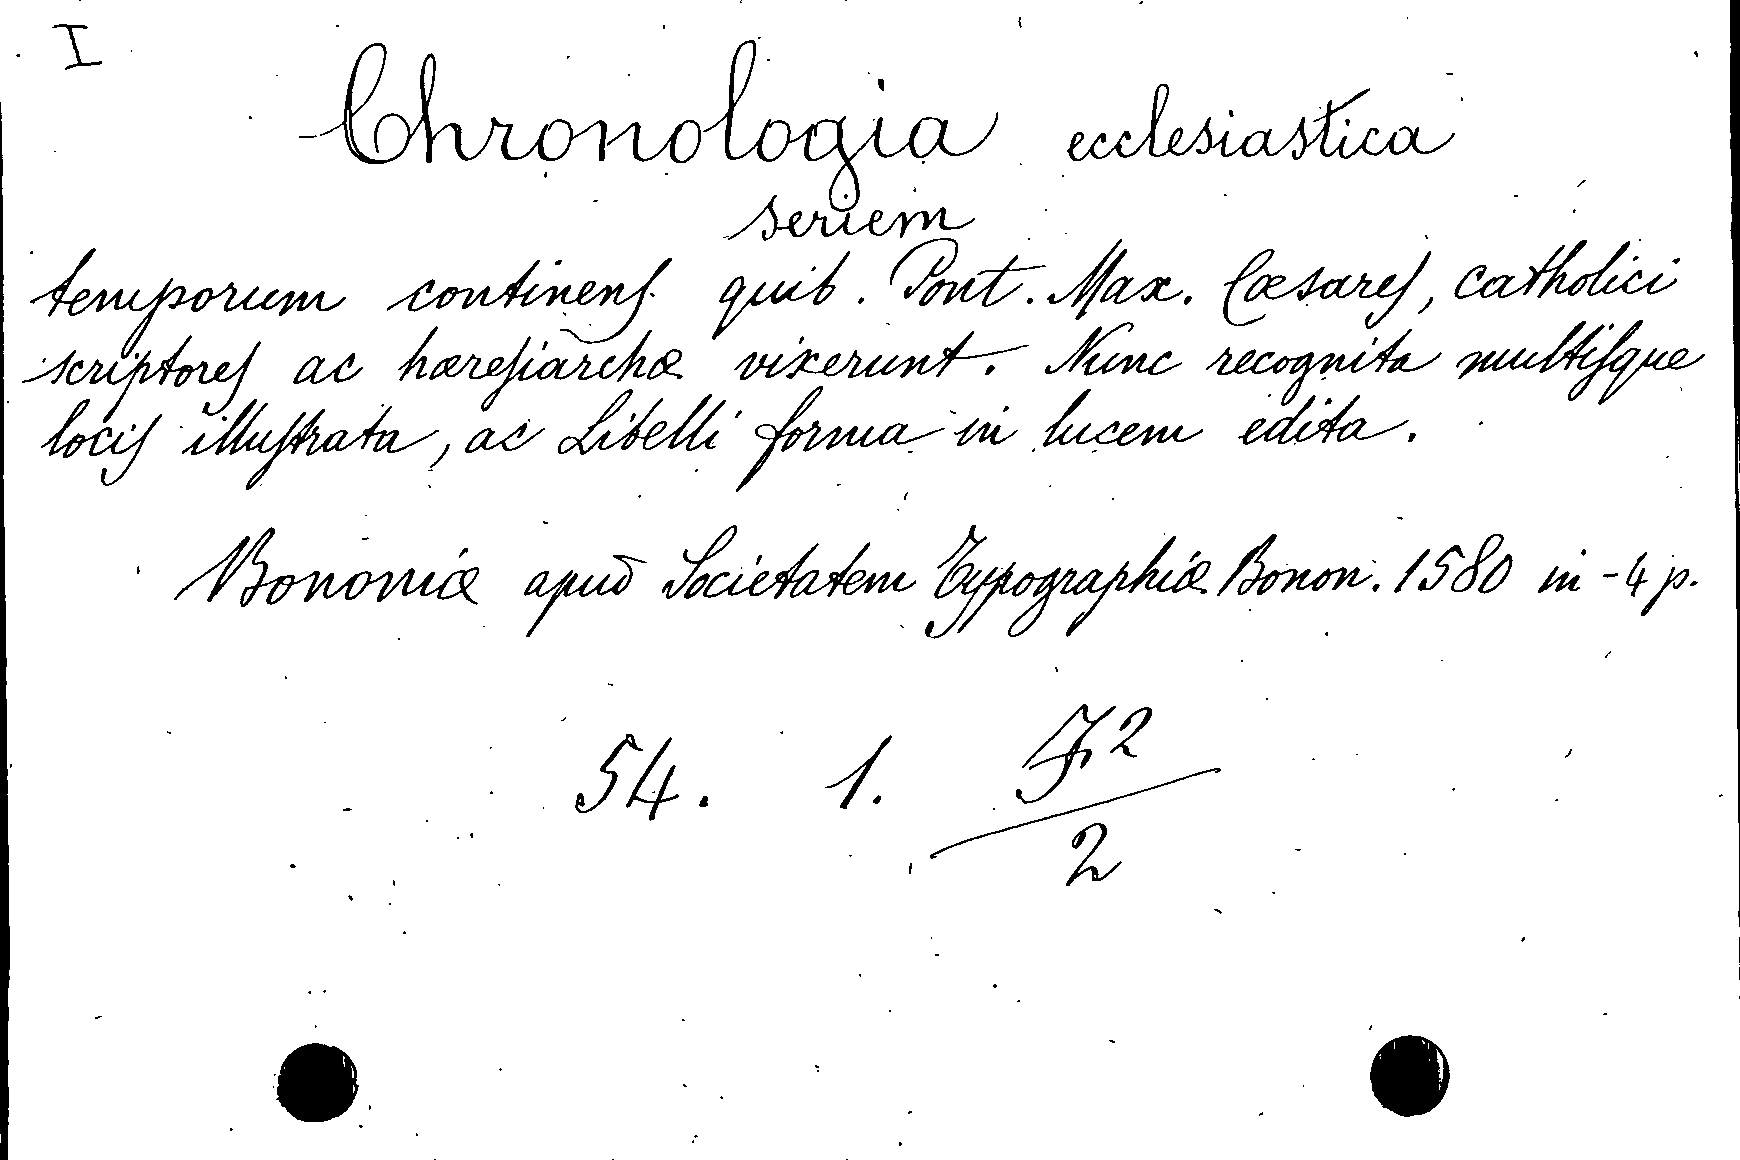 I
Chronologia ecclesiastica
seriem
temporum continens quib. Pont. Max. Cæsares, catholici
scriptores ac hæresiarchæ vixerunt. Nunc recognita multisque
locis illustrata, ac Libelli forma in lucem edita.
Bononiæ apud Societatem Typographiæ Bonon. 1580 in-4 p.
54. 1.
2